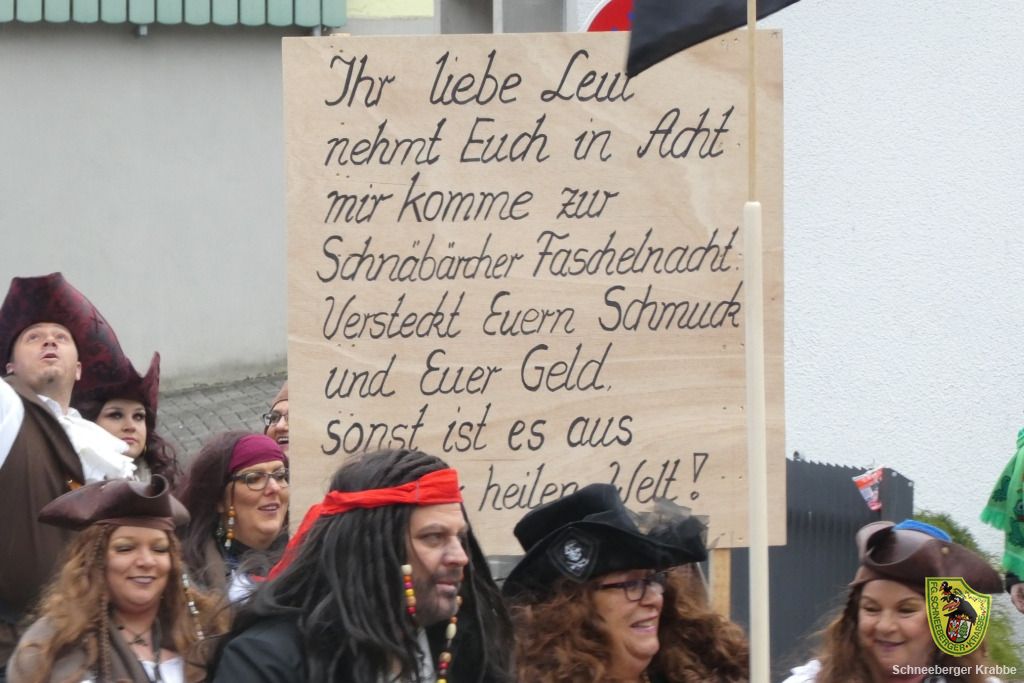 Ihr liebe Leut
nehmt Euch in Acht
mir komme zur
Schnäbärcher Faschelnacht.
Versteckt Euern Schmuck
und Euer Geld,
sonst ist es aus
heilen Welt!
F.G. SCHNEEBERGER KRABBE
Schneeberger Krabbe